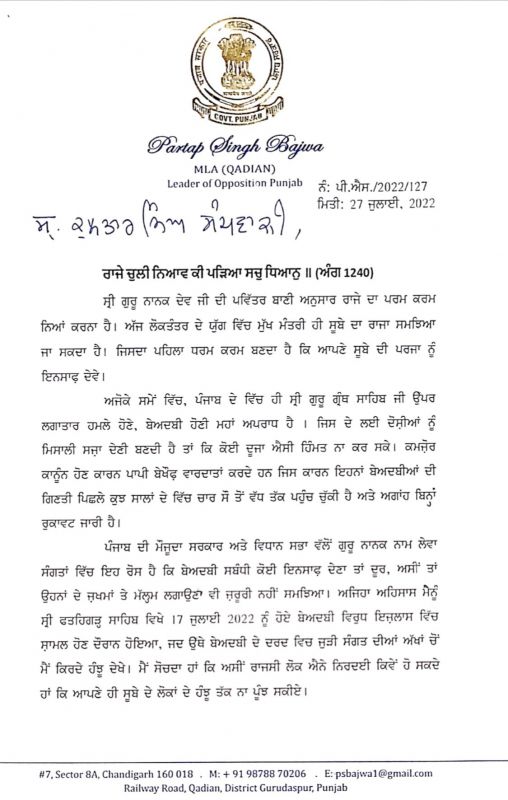 GOVT. PUNJAB
Partap Singh Bajwa
MLA (QADIAN)
Leader of Opposition Punjab
ਨੰ: ਪੀ.ਐਸ./2022/127
ਮਿਤੀ: 27 ਜੁਲਾਈ, 2022
ਸ੍ਰ. ਕੁਲਤਾਰ ਸਿੰਘ ਸੰਧਵਾਂ ਜੀ,
ਰਾਜੇ ਚੁਲੀ ਨਿਆਵ ਕੀ ਪੜਿਆ ਸਚੁ ਧਿਆਨੁ ॥ (ਅੰਗ 1240)
ਸ੍ਰੀ ਗੁਰੂ ਨਾਨਕ ਦੇਵ ਜੀ ਦੀ ਪਵਿੱਤਰ ਬਾਣੀ ਅਨੁਸਾਰ ਰਾਜੇ ਦਾ ਪਰਮ ਕਰਮ
ਨਿਆਂ ਕਰਨਾ ਹੈ। ਅੱਜ ਲੋਕਤੰਤਰ ਦੇ ਯੁੱਗ ਵਿੱਚ ਮੁੱਖ ਮੰਤਰੀ ਹੀ ਸੂਬੇ ਦਾ ਰਾਜਾ ਸਮਝਿਆ
ਜਾ ਸਕਦਾ ਹੈ। ਜਿਸਦਾ ਪਹਿਲਾ ਧਰਮ ਕਰਮ ਬਣਦਾ ਹੈ ਕਿ ਆਪਣੇ ਸੂਬੇ ਦੀ ਪਰਜਾ ਨੂੰ
ਇਨਸਾਫ਼ ਦੇਵੇ।
ਅਜੋਕੇ ਸਮੇਂ ਵਿੱਚ, ਪੰਜਾਬ ਦੇ ਵਿੱਚ ਹੀ ਸ੍ਰੀ ਗੁਰੂ ਗ੍ਰੰਥ ਸਾਹਿਬ ਜੀ ਉੱਪਰ
ਲਗਾਤਾਰ ਹਮਲੇ ਹੋਣੇ, ਬੇਅਦਬੀ ਹੋਣੀ ਮਹਾਂ ਅਪਰਾਧ ਹੈ । ਜਿਸ ਦੇ ਲਈ ਦੋਸ਼ੀਆਂ ਨੂੰ
ਮਿਸਾਲੀ ਸਜ਼ਾ ਦੇਣੀ ਬਣਦੀ ਹੈ ਤਾਂ ਕਿ ਕੋਈ ਦੂਜਾ ਐਸੀ ਹਿੰਮਤ ਨਾ ਕਰ ਸਕੇ। ਕਮਜ਼ੋਰ
ਕਾਨੂੰਨ ਹੋਣ ਕਾਰਨ ਪਾਪੀ ਬੇਖੌਫ਼ ਵਾਰਦਾਤਾਂ ਕਰਦੇ ਹਨ ਜਿਸ ਕਾਰਨ ਇਹਨਾਂ ਬੇਅਦਬੀਆਂ ਦੀ
ਗਿਣਤੀ ਪਿਛਲੇ ਕੁਝ ਸਾਲਾਂ ਦੇ ਵਿੱਚ ਚਾਰ ਸੌ ਤੋਂ ਵੱਧ ਤੱਕ ਪਹੁੰਚ ਚੁੱਕੀ ਹੈ ਅਤੇ ਅਗਾਂਹ ਬਿਨ੍ਹਾਂ
ਰੁਕਾਵਟ ਜਾਰੀ ਹੈ।
ਪੰਜਾਬ ਦੀ ਮੌਜੂਦਾ ਸਰਕਾਰ ਅਤੇ ਵਿਧਾਨ ਸਭਾ ਵੱਲੋਂ ਗੁਰੂ ਨਾਨਕ ਨਾਮ ਲੇਵਾ
ਸੰਗਤਾਂ ਵਿੱਚ ਇਹ ਰੋਸ ਹੈ ਕਿ ਬੇਅਦਬੀ ਸਬੰਧੀ ਕੋਈ ਇਨਸਾਫ਼ ਦੇਣਾ ਤਾਂ ਦੂਰ, ਅਸੀਂ ਤਾਂ
ਉਹਨਾਂ ਦੇ ਜ਼ਖਮਾਂ ਤੇ ਮੱਲ੍ਹਮ ਲਗਾਉਣਾ ਵੀ ਜ਼ਰੂਰੀ ਨਹੀਂ ਸਮਝਿਆ। ਅਜਿਹਾ ਅਹਿਸਾਸ ਮੈਨੂੰ
ਸ੍ਰੀ ਫਤਹਿਗੜ੍ਹ ਸਾਹਿਬ ਵਿਖੇ 17 ਜੁਲਾਈ 2022 ਨੂੰ ਹੋਏ ਬੇਅਦਬੀ ਵਿਰੁਧ ਇਜ਼ਲਾਸ ਵਿੱਚ
ਸ਼ਾਮਲ ਹੋਣ ਦੌਰਾਨ ਹੋਇਆ, ਜਦ ਉਥੇ ਬੇਅਦਬੀ ਦੇ ਦਰਦ ਵਿਚ ਜੁੜੀ ਸੰਗਤ ਦੀਆਂ ਅੱਖਾਂ ਚੋਂ
ਮੈਂ ਕਿਰਦੇ ਹੰਝੂ ਦੇਖੇ। ਮੈਂ ਸੋਚਦਾ ਹਾਂ ਕਿ ਅਸੀਂ ਰਾਜਸੀ ਲੋਕ ਐਨੇ ਨਿਰਦਈ ਕਿਵੇਂ ਹੋ ਸਕਦੇ
ਹਾਂ ਕਿ ਆਪਣੇ ਹੀ ਸੂਬੇ ਦੇ ਲੋਕਾਂ ਦੇ ਹੰਝੂ ਤੱਕ ਨਾ ਪੂੰਝ ਸਕੀਏ।
#7, Sector 8A, Chandigarh 160 018 . M: + 91 98788 70206 . E:-psbajwa1@gmail.com
Railway Road, Qadian, District Gurudaspur, Punjab